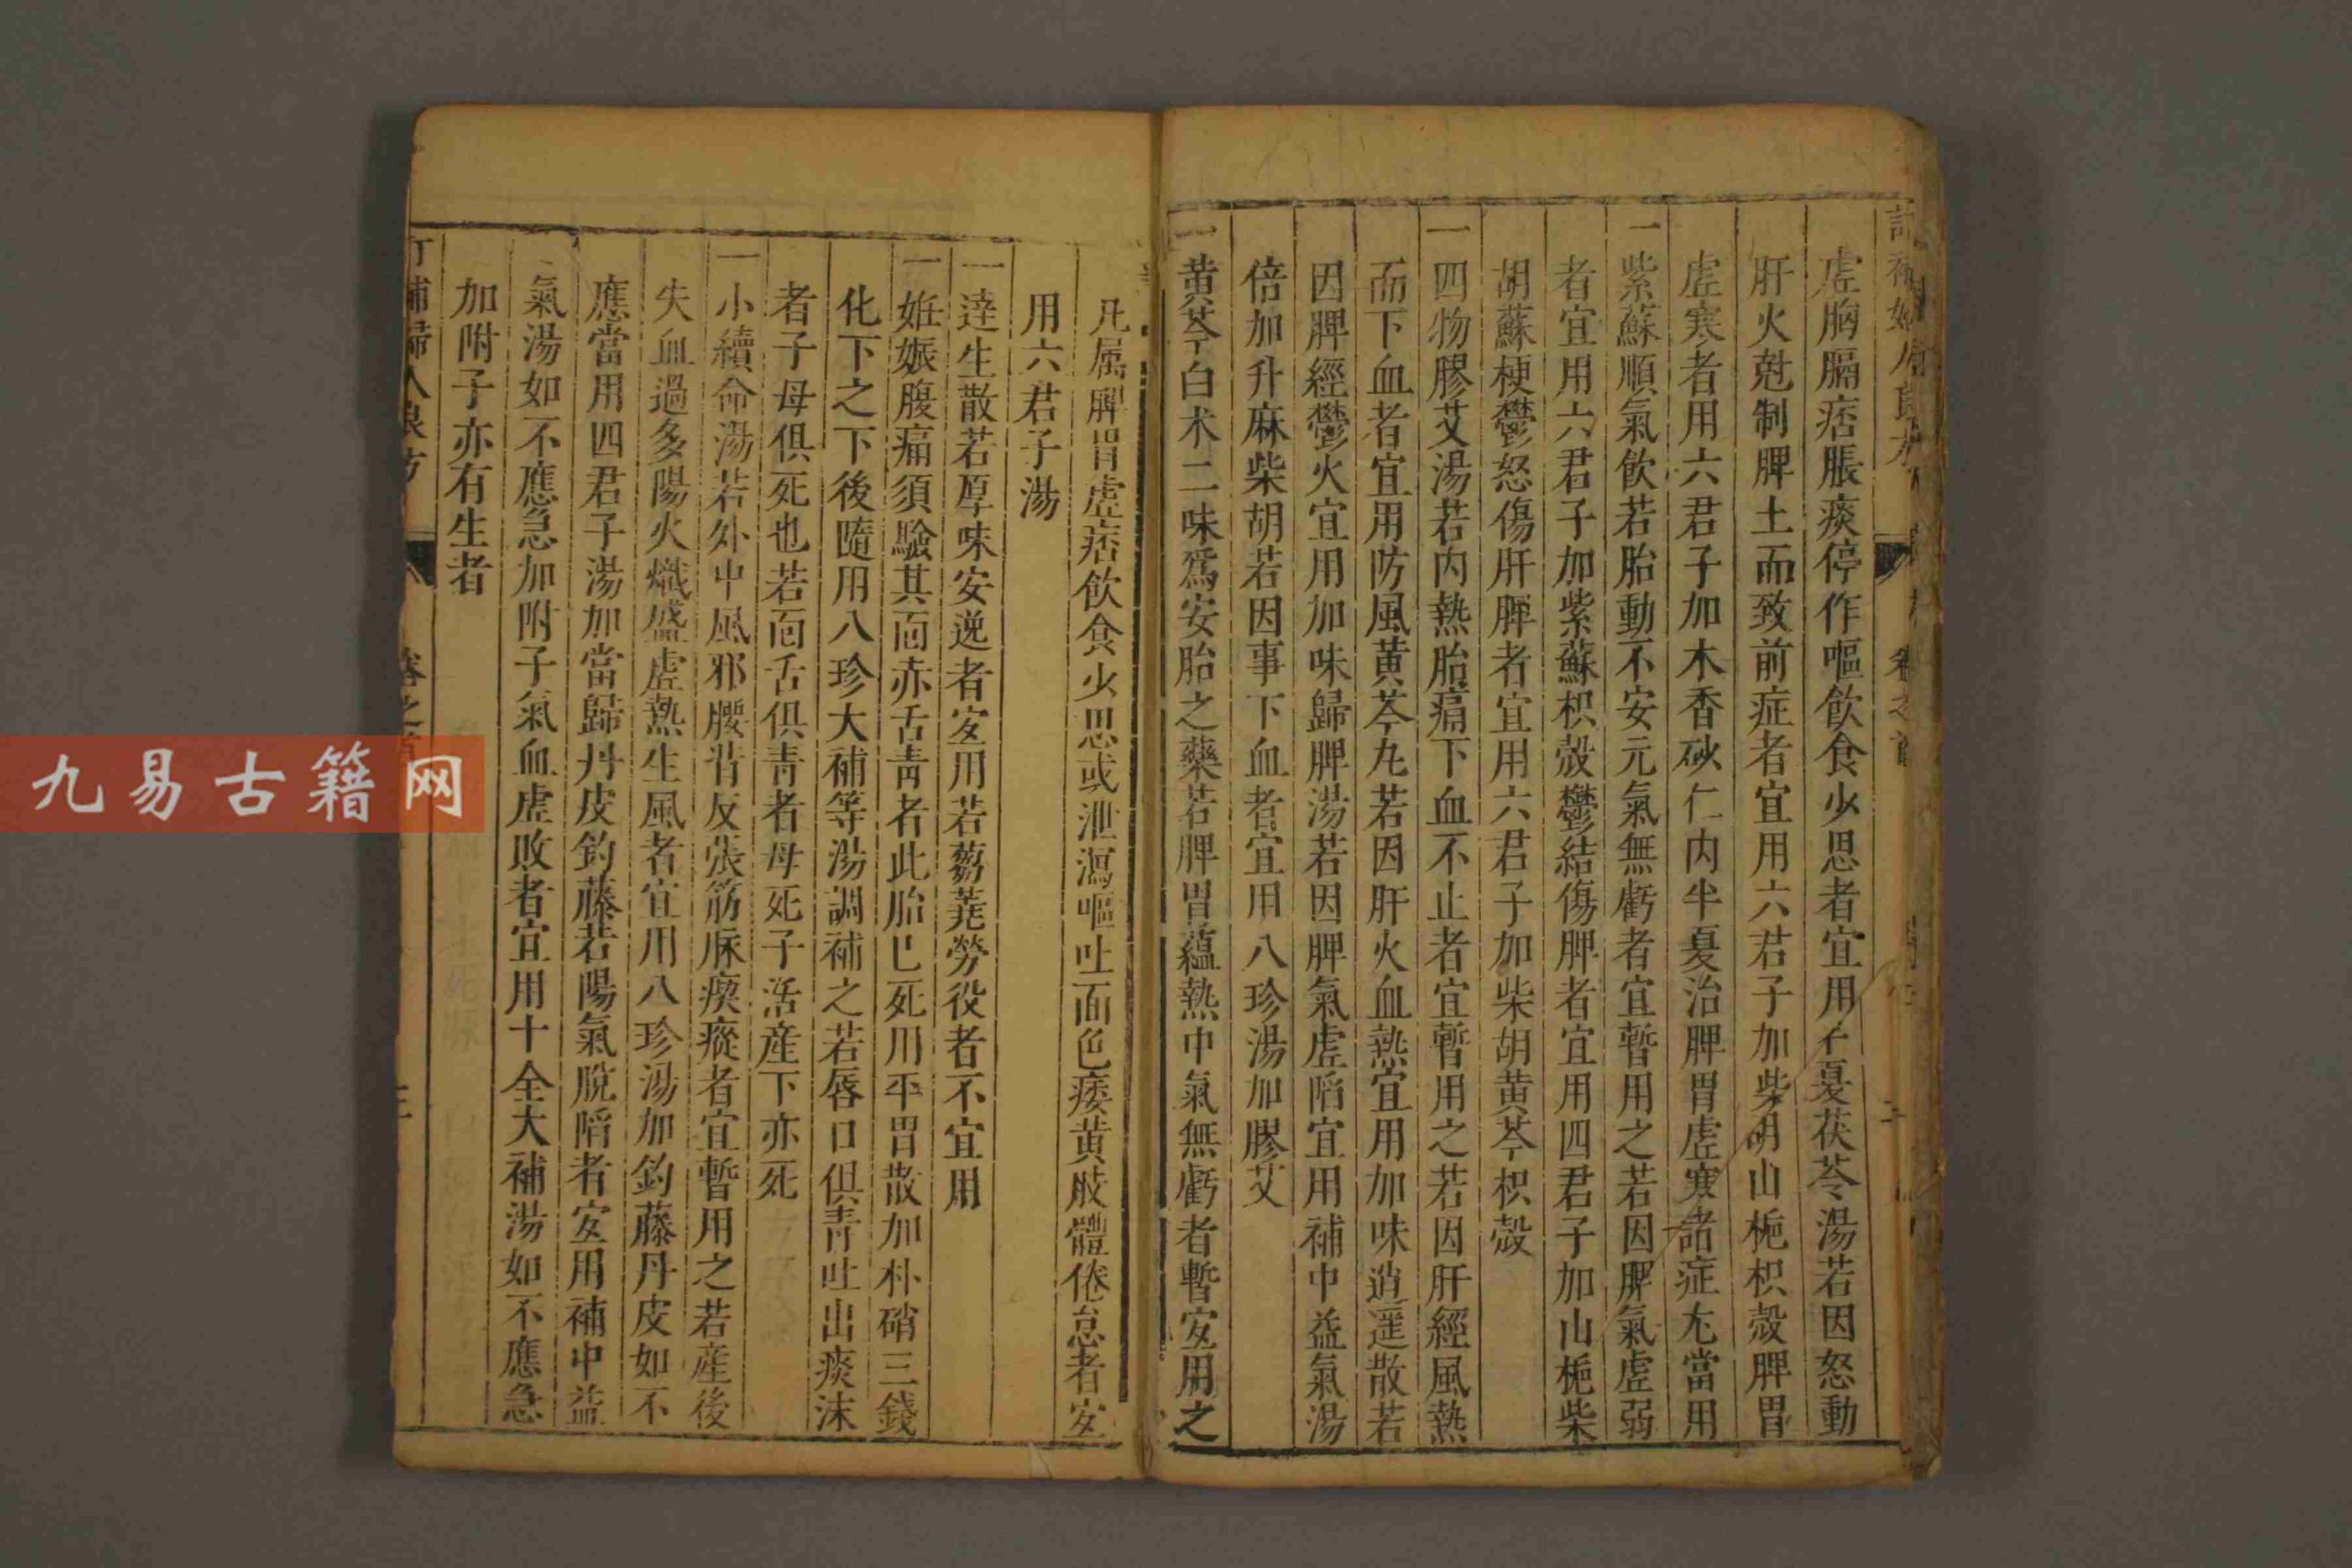 虛胸膈痞脹痰停作嘔飲食少思者宜用半夏茯苓湯若因怒動
肝火尅制脾土而致前症者宜用六君子加柴胡山梔枳殼脾胃
虛寒者用六君子加木香砂仁内半夏治脾胃虛寒諸症尢當用
一紫蘇順氣飲若胎動不安元氣無虧者宜暫用之若因脾氣虛弱
者宜用六君子加紫蘇枳殼鬱結傷脾者宜用四君子加山梔柴
胡蘇梗鬱怒傷肝脾者宜用六君子加柴胡黄芩枳殼
一四物膠艾湯若内熱胎痛下血不止者宜暫用之若因肝經風熱
而下血者宜用防風黄芩丸若因肝火血熱宜用加味逍遥散若
因脾經鬱火宜用加味歸脾湯若因脾氣虛陷宜用補中益氣湯
倍加升麻柴胡若因事下血者宜用八珍湯加膠艾
一黄芩白术二味爲安胎之藥若脾胃蘊熱中氣無虧者暫宐用之
凡属脾胃虛痞飲食少思或泄瀉嘔吐面色痿黄肢體倦怠者宐
用六君子湯
一達生散若厚味安逸者宐用若蒭蕘勞役者不宜用
一姙娠腹痛須驗其面赤舌青者此胎已死用平胃散加朴硝三錢
化下之下後隨用八珍大補等湯調補之若唇口俱青吐出痰沫
者子母俱死也若面舌俱青者母死子活産下亦死
一小續命湯若外中風邪腰背反張筋脈瘈瘲者宜暫用之若産後
失血過多陽火熾盛虛熱生風者宜用八珍湯加釣藤丹皮如不
應當用四君子湯加當歸丹皮釣藤若陽氣脫陷者宐用補中益
氣湯如不應急加附子氣血虛敗者宜用十全大補湯如不應急
加附子亦有生者
補歸人良方 卷之首
九易古籍网